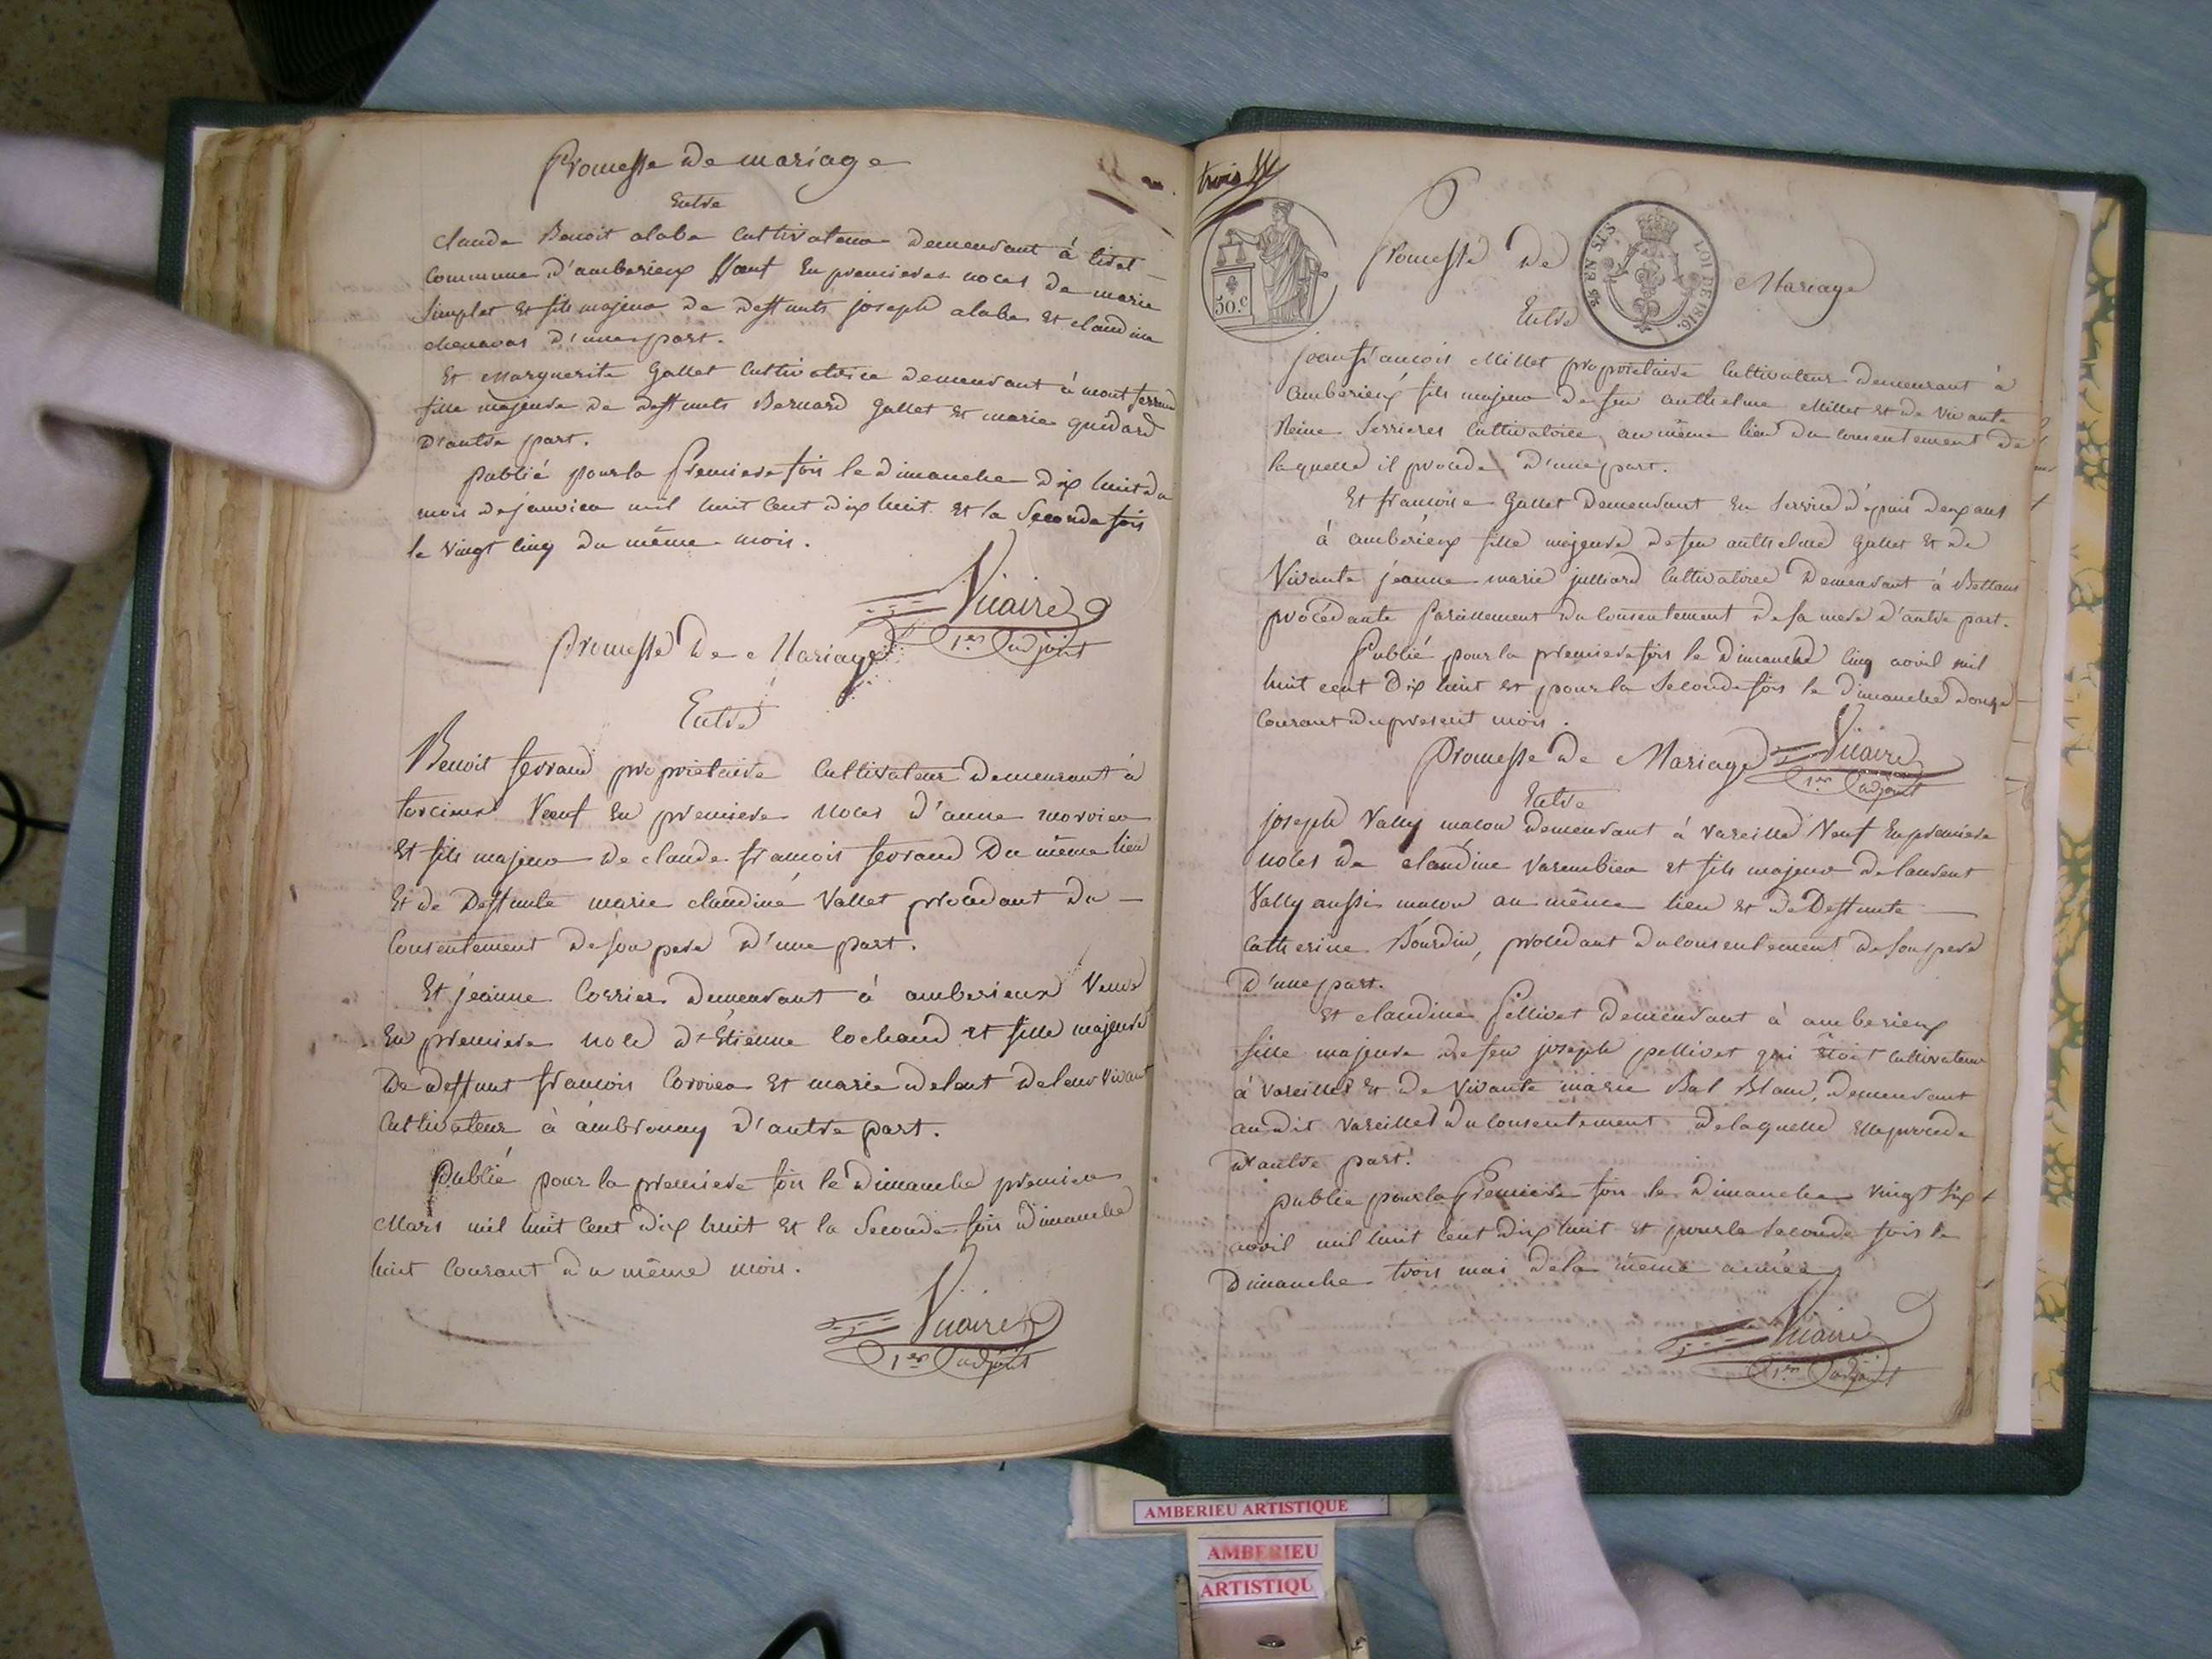 Promesse de mariage
Entre
Claude Benoit alabe Cultivateur demeurant à tiret
Commune d'amberieux Veuf En premieres noces de marie
Simplet et fils majeur de deffunts joseph alabe et claudine
chenavas d'une part.
Et Marguerite Gallet Cultivatrice demeurant à mont ferrand
fille majeure de deffunts Bernard Gallet et marie guidard
D'autre part.
Publié pour la Premiere fois le dimanche dix huit du
mois de janvier mil huit cent dix huit et la Seconde fois
le vingt cinq du même mois.
Vicaire
1er adjoint
Promesse De Mariage
Entre
Benoit ferrand propriétaire Cultivateur demeurant à
torcieux Veuf En premiere noces d'anne morvier
Et fils majeur de claude francois ferrand Du même lieu
Et de Deffunte marie claudine Vallet procédant du
Consentement de son pere d'une part.
Et jeanne Corrier demeurant à amberieux Veuve
En premiere noce d'Etienne lochand et fille majeure
De deffunt francois Corrier Et marie de leur Vivant
Cultivateur à ambronay d'autre part.
Publié pour la premiere fois le dimanche premier
Mars mil huit cent dix huit et la Seconde fois dimanche
huit Courant du même mois.
Vicaire
1er adjoint
trois
50.c
25 EN SUS
LOI DE 1816.
Promesse De Mariage
Entre
jean francois Millet propriétaire Cultivateur demeurant à
Amberieux fils majeur de feu anthelme Millet et de vivante
Reine Serrieres Cultivatrice au même lieu du consentement de
laquelle il procede D'une part.
Et francoise Gallet Demeurant En Service depuis dix ans
à amberieux fille majeure de feu anthelme Gallet et de
Vivante jeanne marie julliard Cultivatrice Demeurant à Bettans
procédante Pareillement du Consentement de sa mere d'autre part.
Publié pour la premiere fois le Dimanche cinq avril mil
huit cent Dix huit et pour la Seconde fois le dimanche douze
Courant du present mois.
Promesse De Mariage
Vicaire
1er adjoint
Entre
joseph Vally macon Demeurant à Vareille Veuf En premiere
noces de claudine Varembier et fils majeur de laurent
Vally aussi macon au même lieu et de Deffunte
Catherine Bourdin, procédant du consentement de son pere
D'une part.
Et claudine Pellivet demeurant à amberieux
fille majeure de feu joseph pellivet qui étoit Cultivateur
à vareilles et de Vivante marie Bal Blanc, demeurant
au dit vareilles du consentement de laquelle elle procede
D'autre part.
Publié pour la Premiere fois le dimanche vingt six
avril mil huit cent dix huit et pour la seconde fois le
Dimanche trois mai de la même année
Vicaire
1er adjoint
AMBERIEU ARTISTIQUE
AMBERIEU
ARTISTIQU